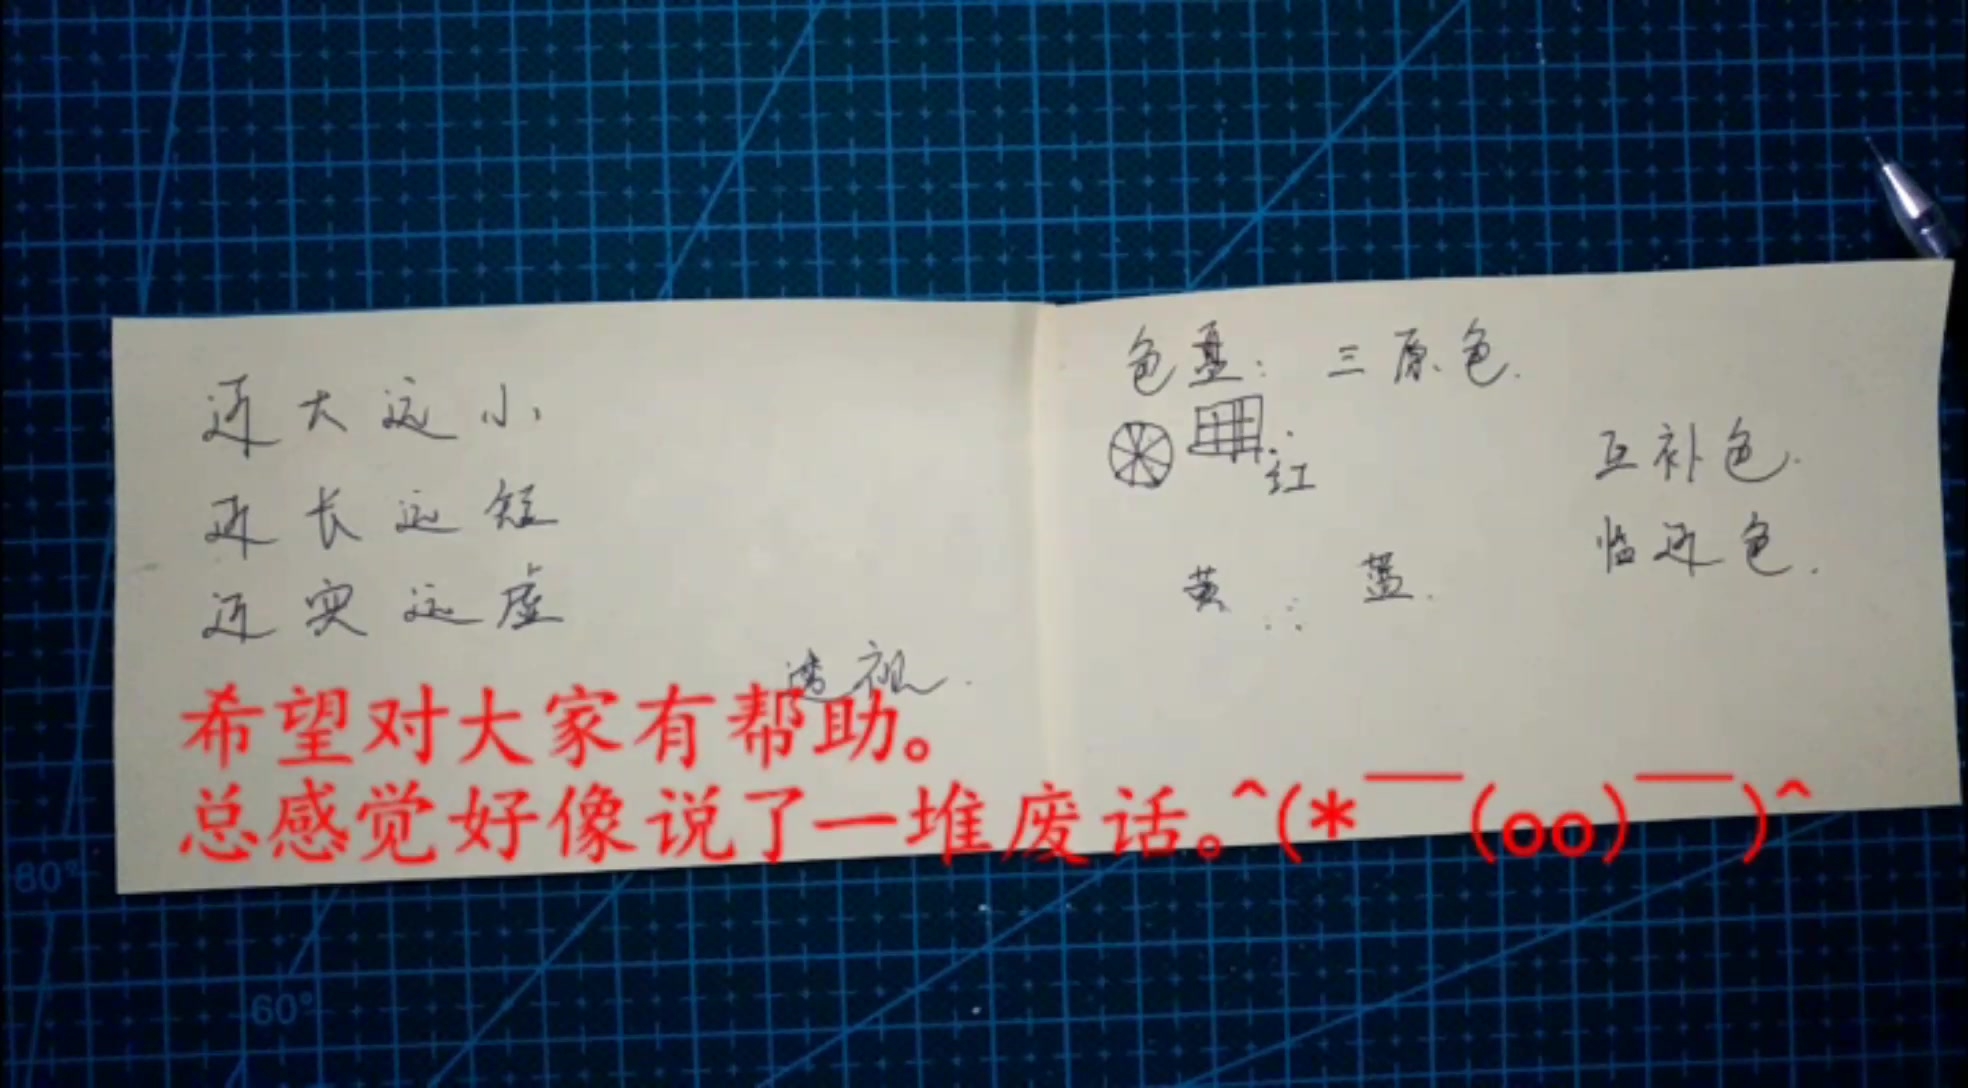 近大远小
近长远短
近实远虚
透视.
色盘: 三原色.
红
黄 蓝.
互补色.
临近色.
希望对大家有帮助。
总感觉好像说了一堆废话。^(*￣(oo)￣)^
80°
60°